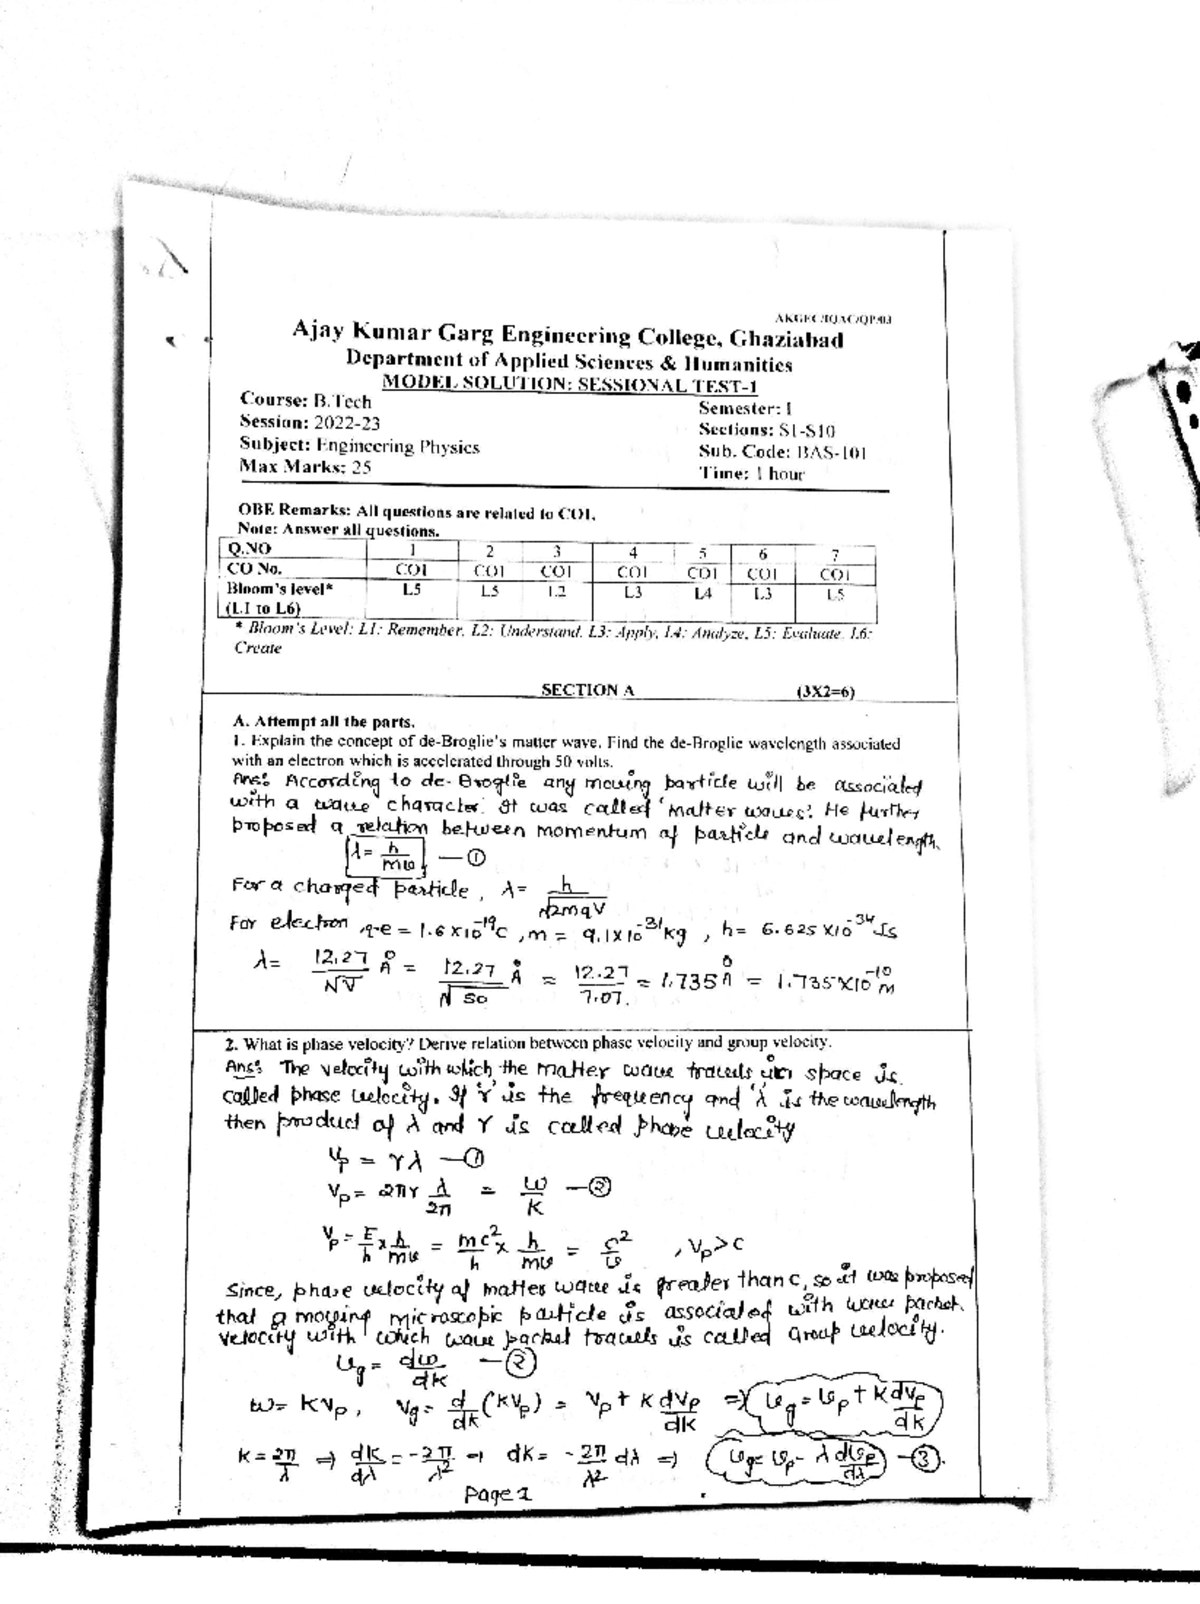 AKGEC/IQAC/QP/03
Ajay Kumar Garg Engineering College, Ghaziabad
Department of Applied Sciences & Humanities
MODEL SOLUTION: SESSIONAL TEST-1
Course: B.Tech Semester: I
Session: 2022-23 Sections: S1-S10
Subject: Engineering Physics Sub. Code: BAS-101
Max Marks: 25 Time: 1 hour
OBE Remarks: All questions are related to CO1.
Note: Answer all questions.
Q.NO 1 2 3 4 5 6 7
CO No. CO1 CO1 CO1 CO1 CO1 CO1 CO1
Bloom's level* L5 L5 L2 L3 L4 L3 L5
(L1 to L6)
* Bloom's Level: L1: Remember, L2: Understand, L3: Apply, L4: Analyze, L5: Evaluate, L6:
Create
SECTION A (3X2=6)
A. Attempt all the parts.
1. Explain the concept of de-Broglie's matter wave. Find the de-Broglie wavelength associated
with an electron which is accelerated through 50 volts.
Ans: According to de-Broglie any moving particle will be associated
with a wave character. It was called 'matter waves'. He further
proposed a relation between momentum of particle and wavelength.
λ = h/mv —①
For a charged particle, λ = h/√2mqV
For electron q=e = 1.6×10⁻¹⁹C, m = 9.1×10⁻³¹kg, h = 6.625×10⁻³⁴Js
λ = 12.27/√V Å = 12.27/√50 Å = 12.27/7.07. = 1.735 Å = 1.735×10⁻¹⁰m
2. What is phase velocity? Derive relation between phase velocity and group velocity.
Ans: The velocity with which the matter wave travels in space is
called phase velocity. If 'ν' is the frequency and 'λ' is the wavelength
then product of λ and ν is called phase velocity
vₚ = νλ —①
vₚ = 2πν λ/2π = ω/k —②
vₚ = E/h × h/mv = mc²/h × h/mv = c²/v, vₚ>c
Since, phase velocity of matter wave is greater than c, so it was proposed
that a moving microscopic particle is associated with wave packet.
velocity with which wave packet travels is called group velocity.
v_g = dω/dk —②
ω = kvₚ, v_g = d/dk (kvₚ) = vₚ + k dvₚ/dk ⇒ v_g = vₚ + k dvₚ/dk
k = 2π/λ ⇒ dk/dλ = -2π/λ² ⇒ dk = -2π/λ² dλ ⇒ v_g = vₚ - λ dvₚ/dλ —③.
Page 1